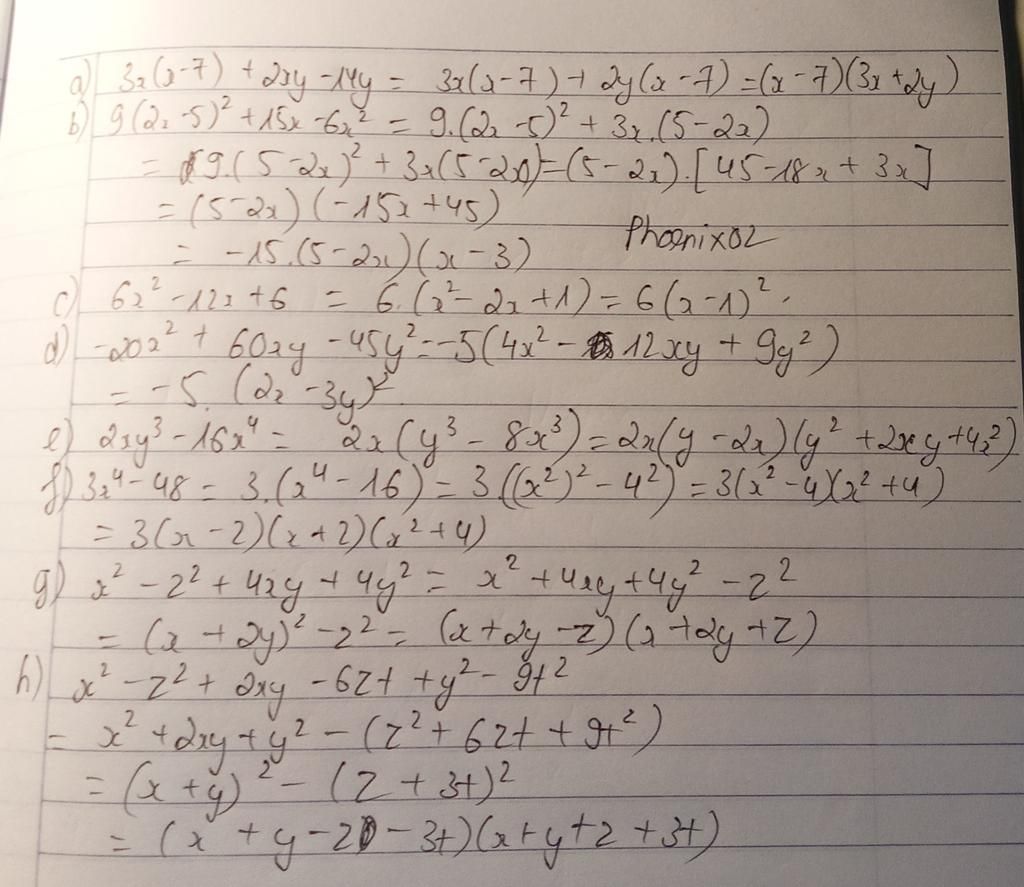 a) 3x(x-7) + 2xy - 14y = 3x(x-7) + 2y(x-7) = (x-7)(3x+2y)
b) 9(2x-5)² + 15x - 6x² = 9.(2x-5)² + 3x.(5-2x)
= 9.(5-2x)² + 3x(5-2x) = (5-2x).[45-18x+3x]
= (5-2x)(-15x+45)
Phoenix02
= -15.(5-2x)(x-3)
c) 6x² - 12x + 6 = 6.(x² - 2x + 1) = 6(x-1)².
d) -20x² + 60xy - 45y² = -5(4x² - 12xy + 9y²)
= -5.(2x-3y)²
e) 2xy³ - 16x⁴ = 2x(y³ - 8x³) = 2x(y-2x)(y² + 2xy + 4x²)
f) 3x⁴ - 48 = 3.(x⁴ - 16) = 3((x²)² - 4²) = 3(x²-4)(x²+4)
= 3(x-2)(x+2)(x²+4)
g) x² - z² + 4xy + 4y² = x² + 4xy + 4y² - z²
= (x+2y)² - z² = (x+2y-z)(x+2y+z)
h) x² - z² + 2xy - 6zt + y² - 9t²
= x² + 2xy + y² - (z² + 6zt + 9t²)
= (x+y)² - (z+3t)²
= (x+y-z-3t)(x+y+z+3t)